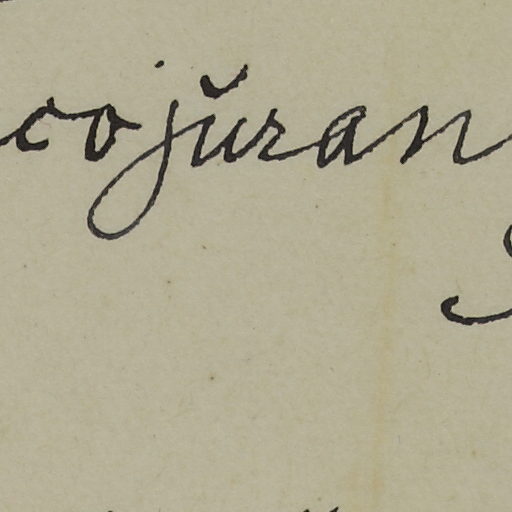 cojŭran